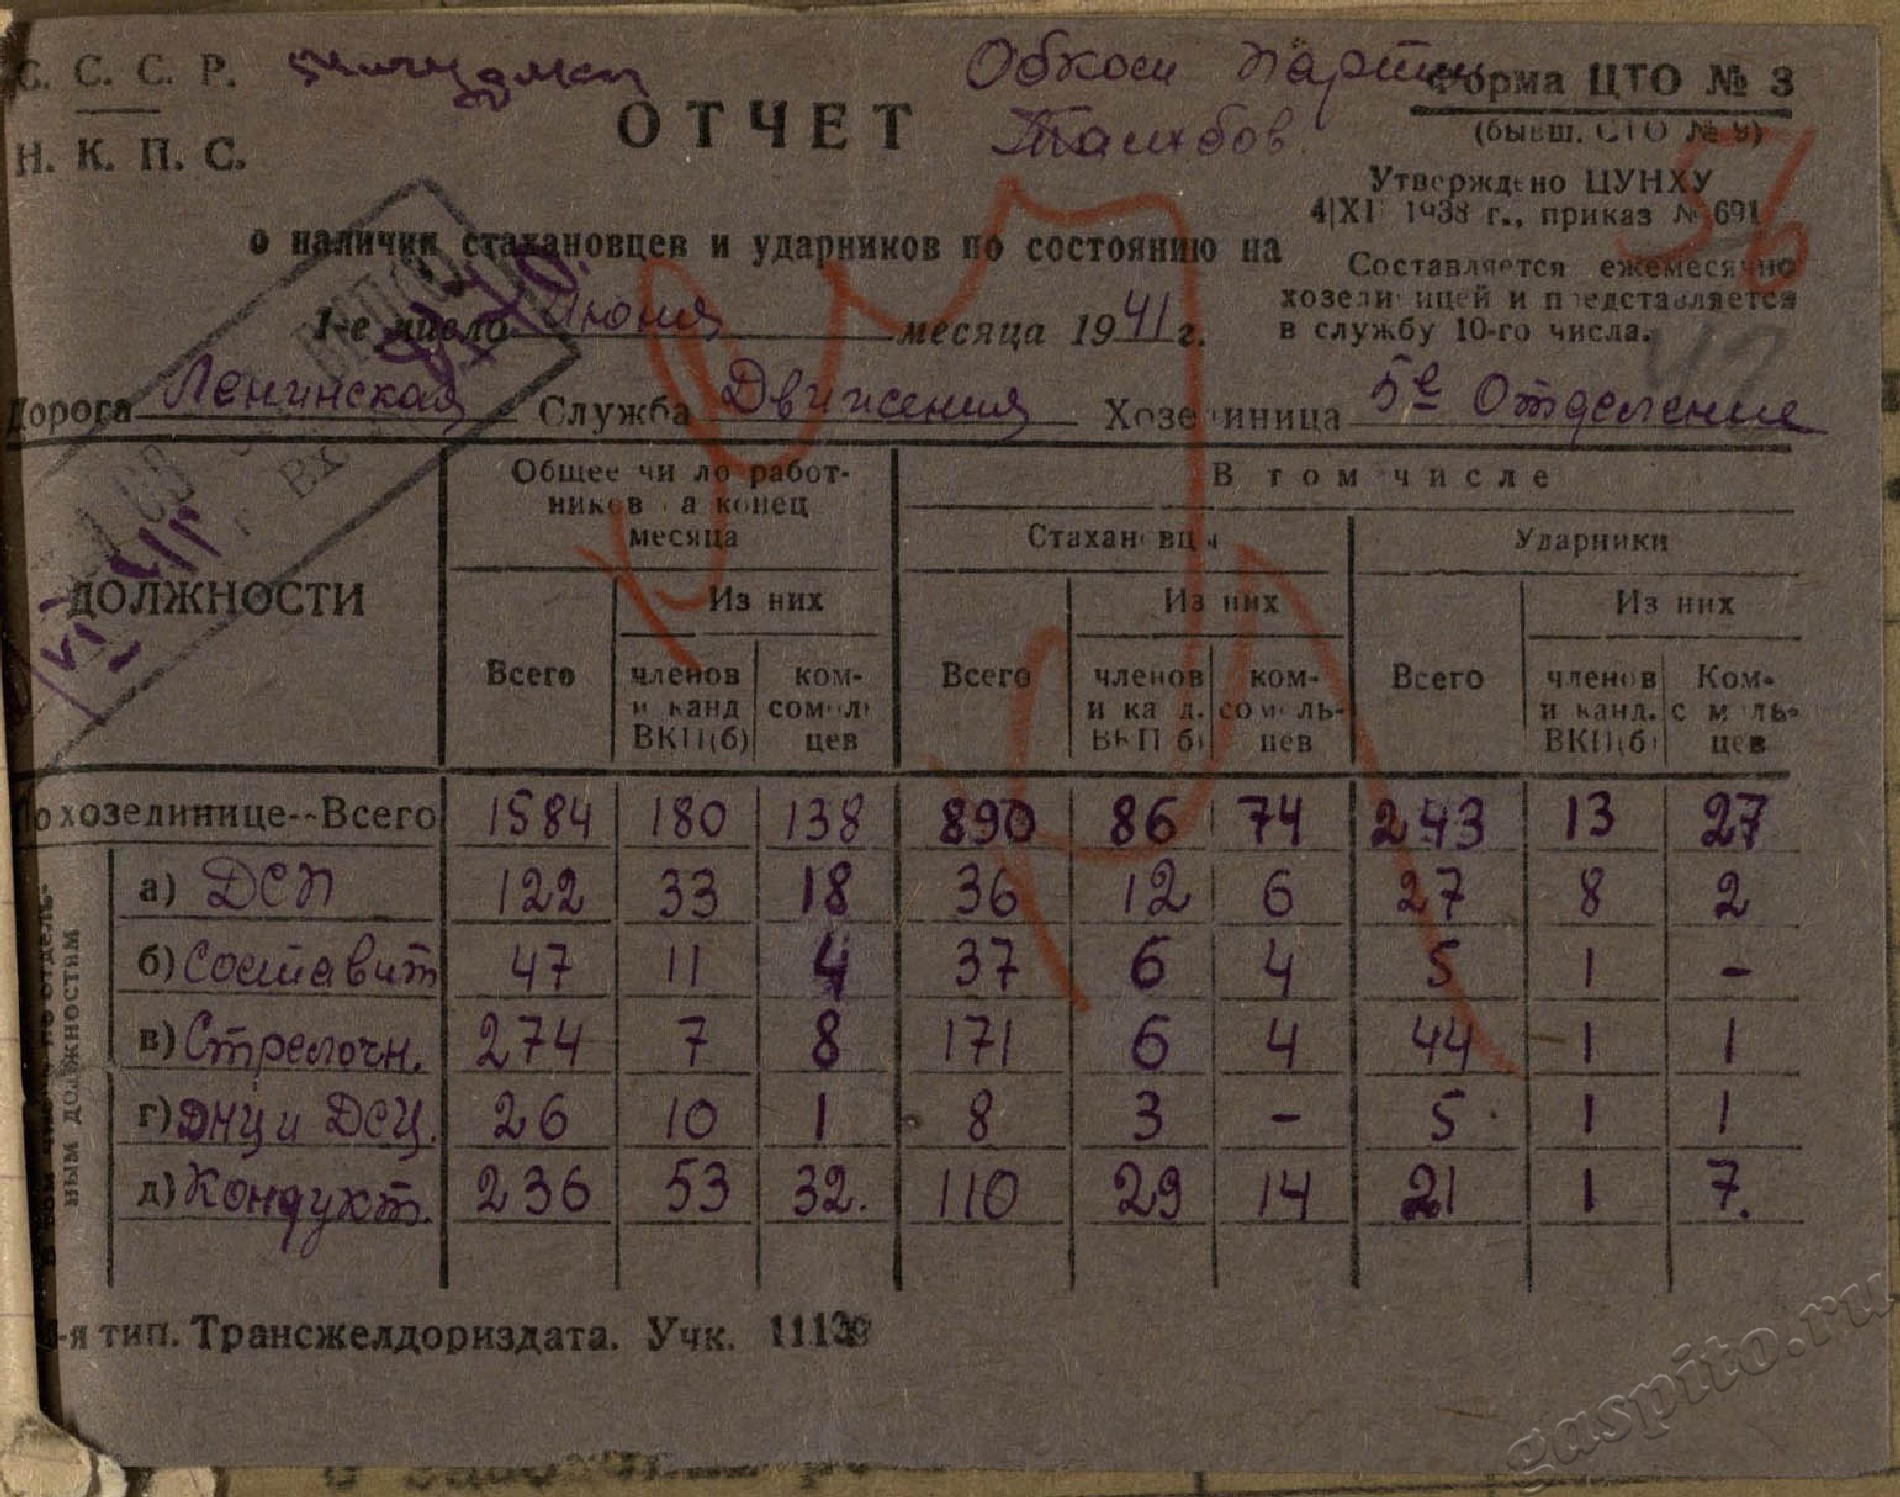 С. С. С. Р.
Н. К. П. С.
Обком партии
Тамбов.
ОТЧЕТ
Форма ЦТО № 3
(бывш. СТО № 9)
Утверждено ЦУНХУ
1938 г., приказ № 691
Составляется ежемесячно
хозединицей и представляется
в службу 10-го числа.
56
42
о наличии стахановцев и ударников по состоянию на
1-е число Июня месяца 1941 г.
Дорога Ленинская Служба Движения Хозединица 5е Отделение
ДОЛЖНОСТИ
Общее число работ-
ников на конец
месяца
В том числе
Стахановцы
Ударники
Из них Из них Из них
Всего членов и канд ВКП(б) ком-сомоль цев
Всего членов и канд. ВКП(б) ком-сомоль-цев
Всего членов и канд. ВКП(б) Ком-сомоль-цев
По хозединице--Всего 1584 180 138 890 86 74 243 13 27
ным должностям
а) ДСП 122 33 18 36 12 6 27 8 2
б) Составит 47 11 4 37 6 4 5 1 -
в) Стрелочн. 274 7 8 171 6 4 44 1 1
г) ДНЦ и ДСЦ. 26 10 1 8 3 - 5 1 1
д) Кондукт. 236 53 32. 110 29 14 21 1 7.
-я тип. Трансжелдориздата. Учк.
gaspito.ru